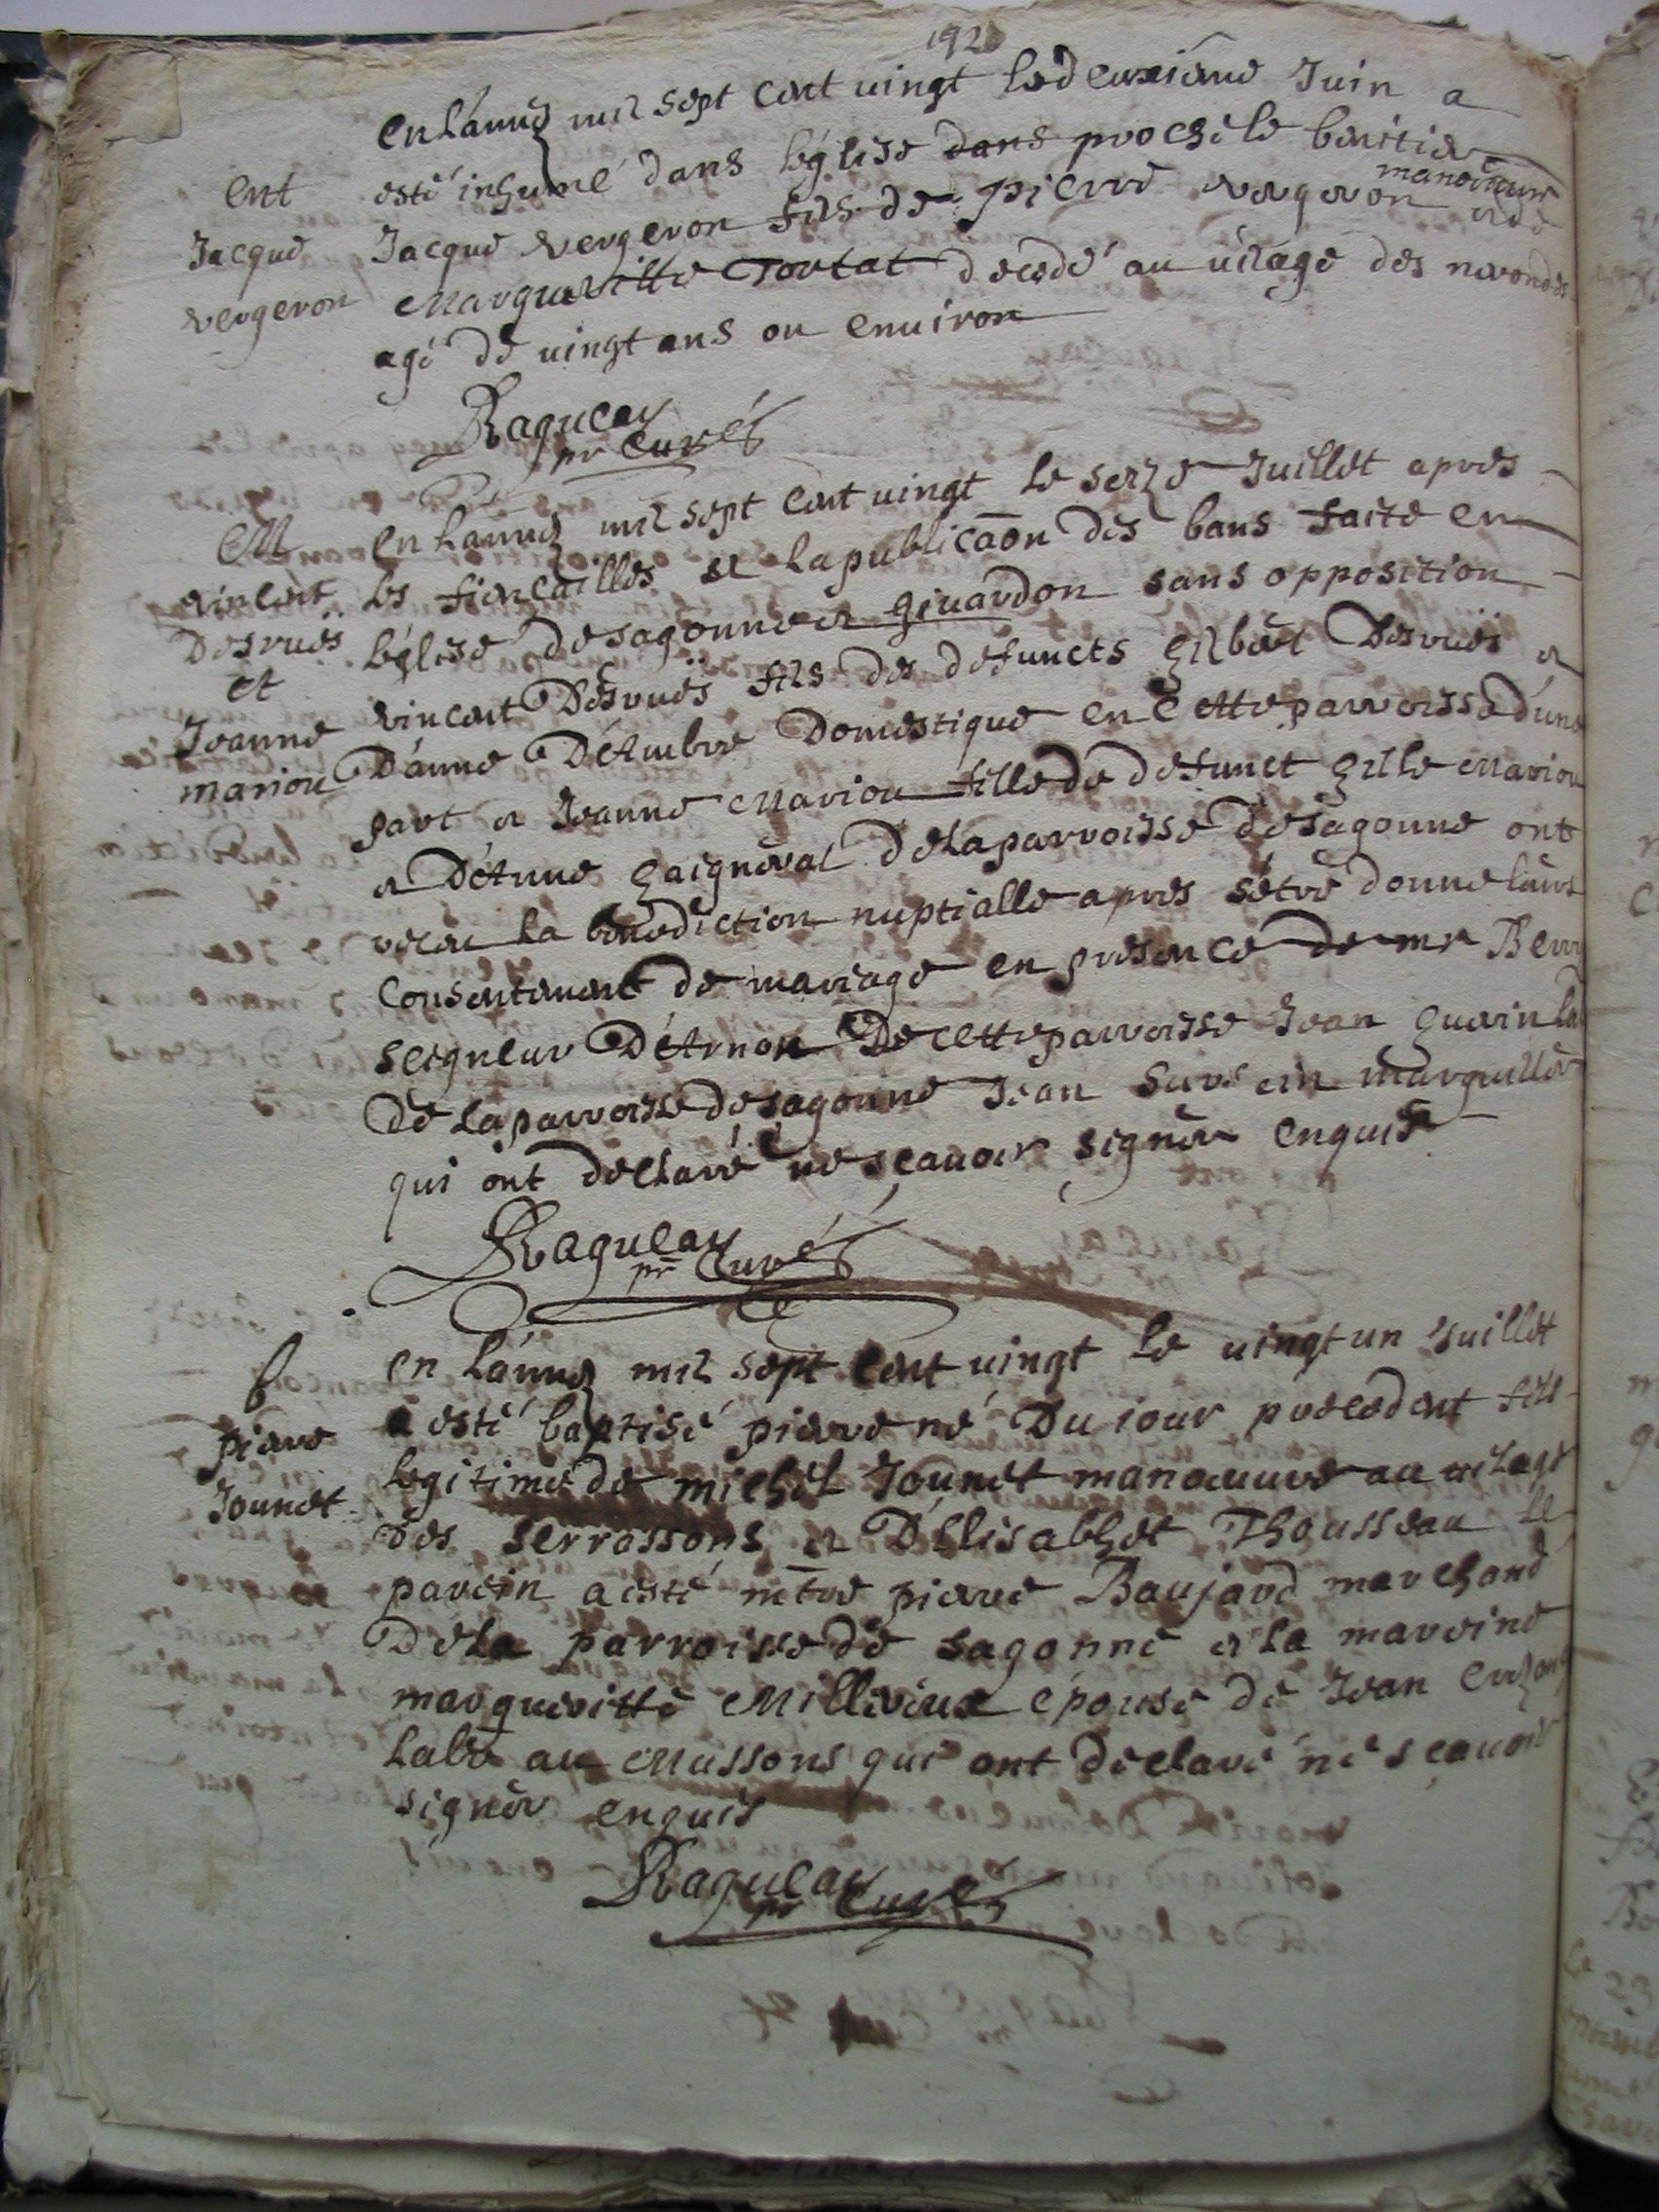 192
en lánneé mil sept cent uingt le deuxiéme Juin a
esté inhumé dans léglise dans proche le benitier
manoeuure
Jacque vergeron fils de pierre vergeron et de
Margueritte Tortat decedé au uilage des nerondes
agé de uingt ans ou enuiron
ent
Jacque
vergeron
Ragueau
pr Curé
en lanneé mil sept cent uingt le seize Juillet apres
les fiençailles et la publicaõn des bans faite en
léglise de sagonne et giuardon sans opposition
vincent Desruës fils des defuncts gilbert Desruës et
D'anne D'Ambre Domestique en cette parroisse d'une
part et Jeanne Mariou fille de defunct gille Mariou
et D'etiene gaigneral de la parroisse de sagonne ont
receu la benediction nuptialle apres sétre donne leurs
consentement de mariage en presence de mr Berry
seigneur D'Arnon De cette parroisse Jean guerin
de la parroisse de sagonne Jean marguillier
qui ont declaré ne scauoir signer enquis
M
vincent
Desruës
et
Jeanne
mariou
Ragueau
pr Curé
en lánneé mil sept cent uingt le uingt un Juillet
a esté baptisé pierre né Du iour precedent fils
legitime de michel Jounet manoeuure au uilage
des serrassons et D'Ellisabhet Thousseau le
parein a esté métre pierre Baujard marchand
De la parroisse de sagonne et la mareine
marguerittè Millerioux épouse de Jean
Labr au Mussons qui ont declaré ne scauoir
signer enquis
b
pierre
Jounet
Ragueau
pr Curé